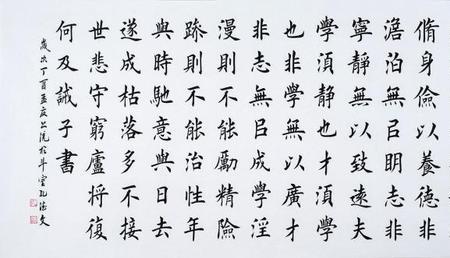 脩身儉以養德非
澹泊無㠯明志非
寧靜無以致遠夫
學須靜也才須學
也非學無以廣才
非志無㠯成學淫
漫則不能勵精險
躁則不能治性年
與時馳意與日去
遂成枯落多不接
世悲守窮廬將復
何及誡子書
歲次丁酉孟夏上浣於斗室孔文